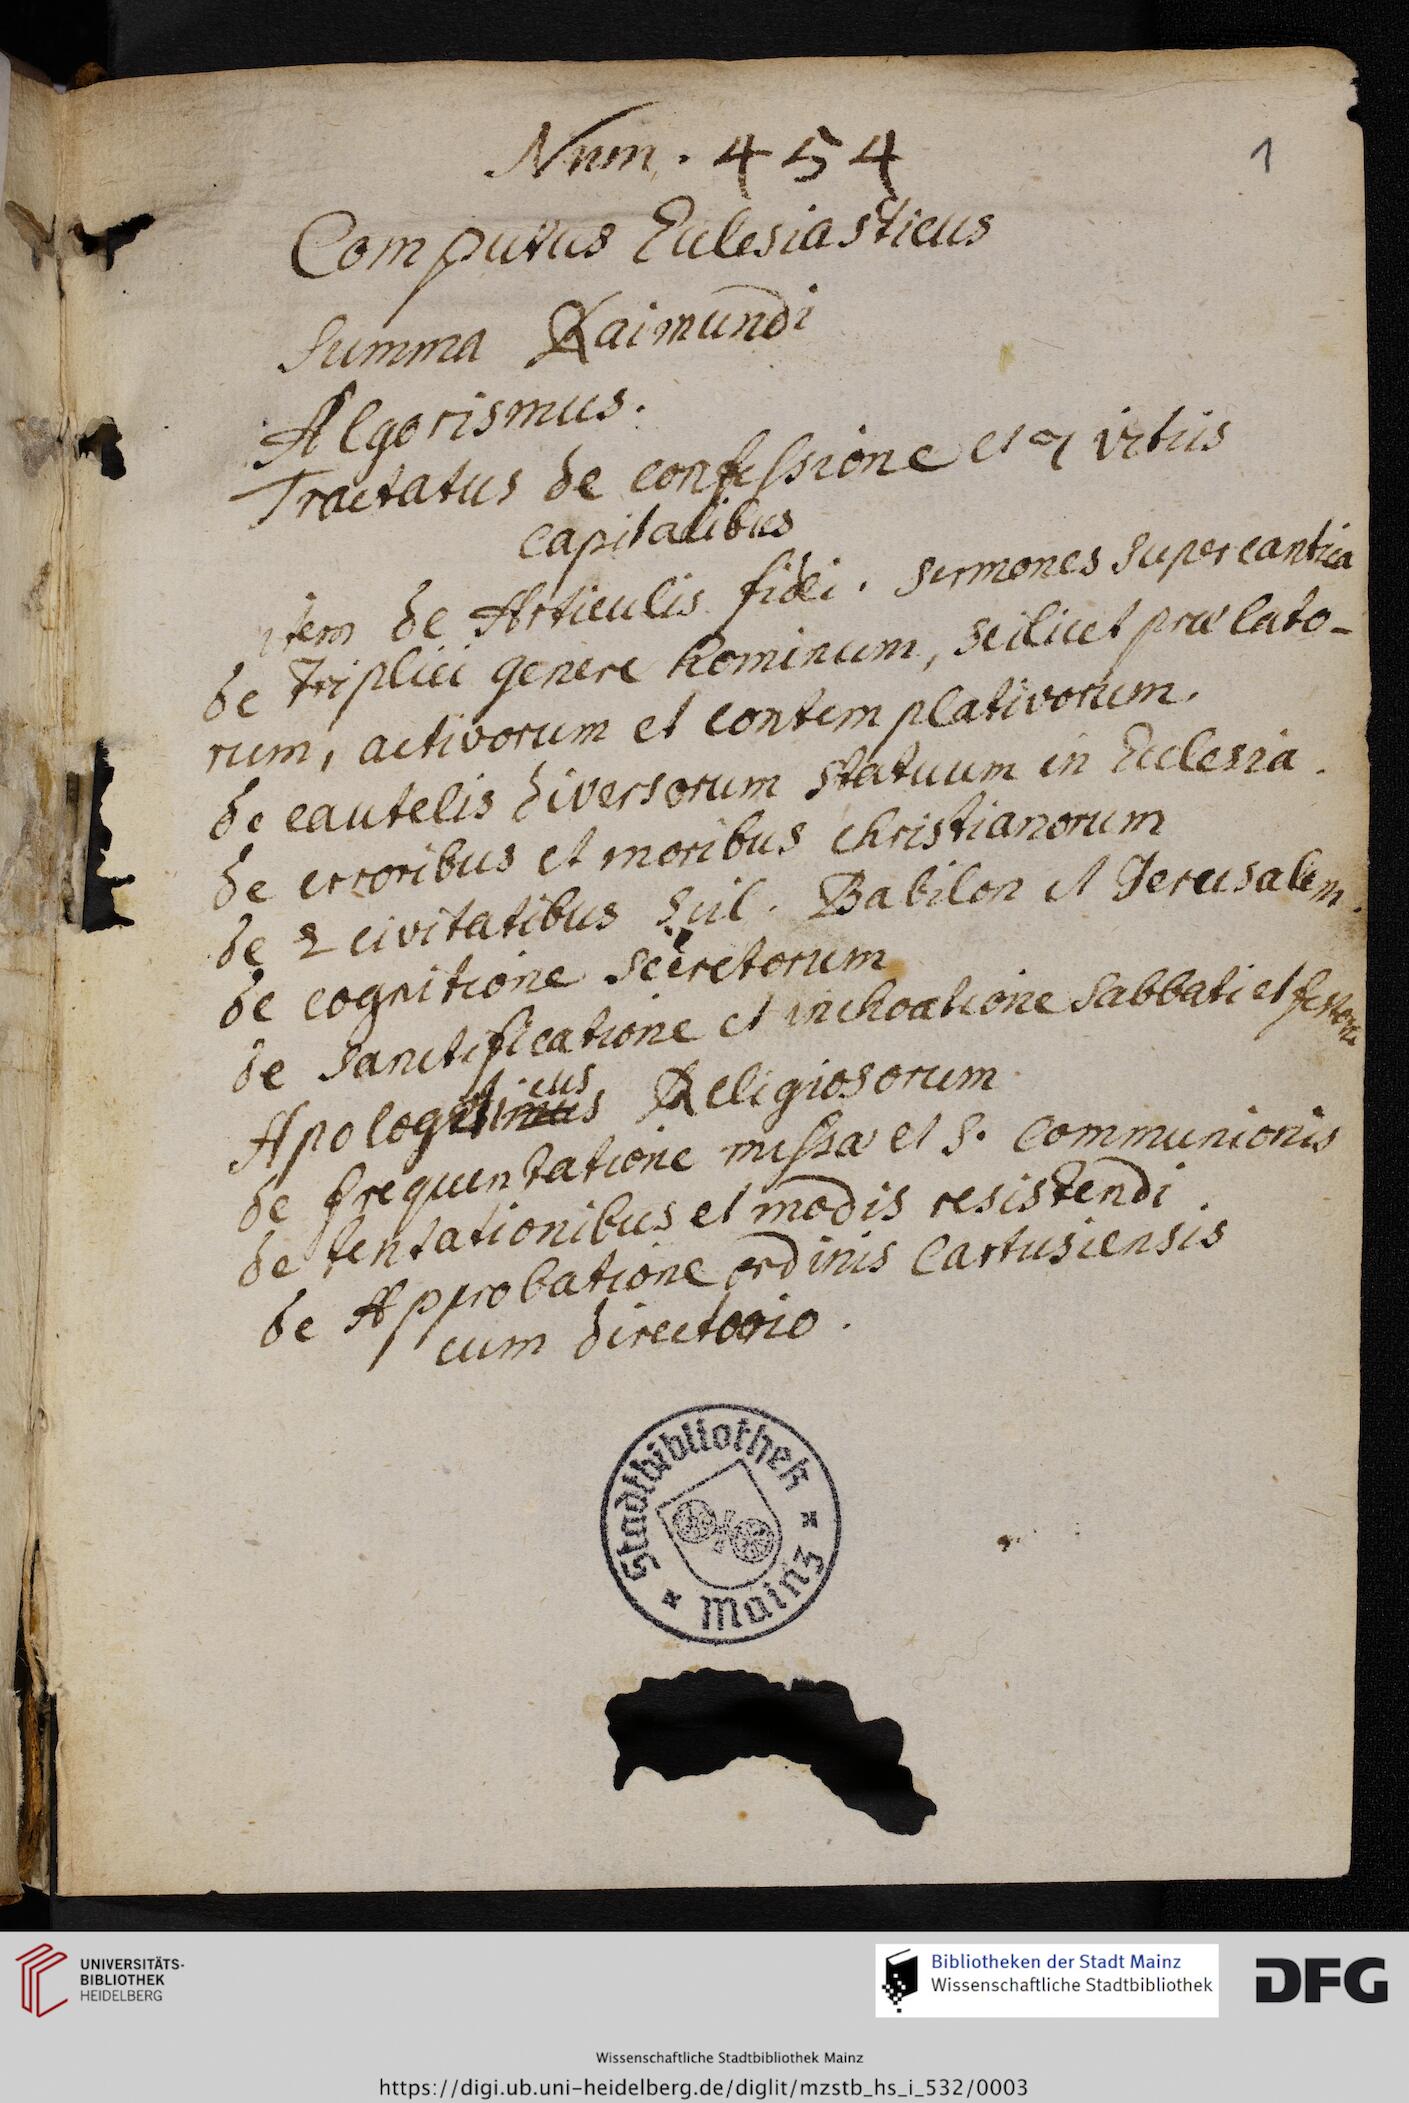 Num. 454
1
Computus Ecclesiasticus
Summa Raimundi
Algorismus.
Tractatus de confessione et 7 vitiis
capitalibus
item de Articulis fidei. Sermones super cantica
de Triplici genere hominum, scilicet prælato-
rum, activorum et contemplativorum.
de cautelis diversorum statuum in Ecclesia.
de erroribus et moribus christianorum
de 2 civitatibus scil. Babilon et Jerusalem.
de cognitione secretorum
de Sanctificatione et inchoatione Sabbati et
Apologeticus Religiosorum
de frequentatione missæ et S. Communionis
de tentationibus et modis resistendi
de Approbatione ordinis Cartusiensis
cum directorio.
Stadtbibliothek
Mainz
UNIVERSITÄTS-
BIBLIOTHEK
HEIDELBERG
Bibliotheken der Stadt Mainz
Wissenschaftliche Stadtbibliothek
DFG
Wissenschaftliche Stadtbibliothek Mainz
https://digi.ub.uni-heidelberg.de/diglit/mzstb_hs_i_532/0003